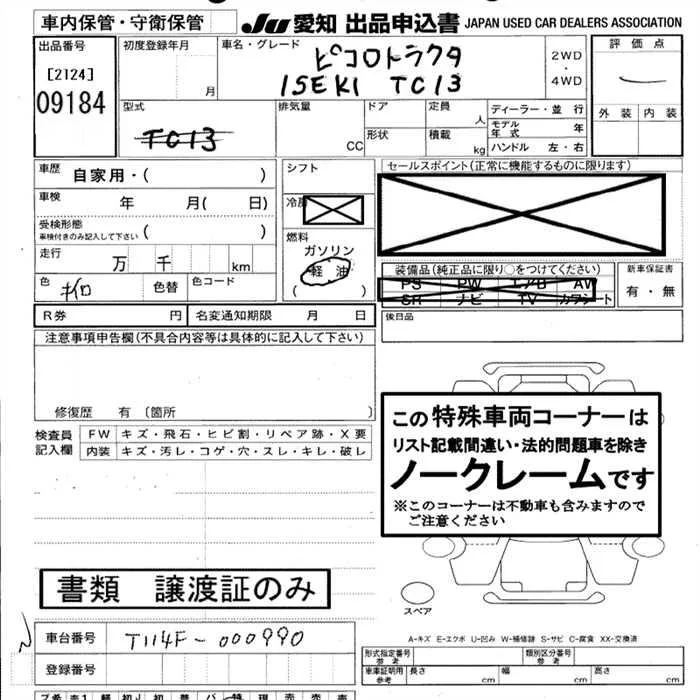 車内保管・守衛保管
JU 愛知 出品申込書 JAPAN USED CAR DEALERS ASSOCIATION
出品番号
[2124]
09184
初度登録年月
月
車名・グレード
ピコロトラクタ
ISEKI TC13
2WD
・
4WD
評価点
外装 内装
型式
TC13
排気量
CC
ドア
形状
定員
人
積載
kg
ディーラー・並行
モデル年式 年
ハンドル 左・右
車歴 自家用・( )
車検 年 月( 日)
受検形態
車検付きのみ記入して下さい ( )
走行 万 千 km
色 色替 色コード
シフト
冷房
燃料
ガソリン
軽油
( )
セールスポイント(正常に機能するものに限ります)
装備品(純正品に限り○をつけてください)
PS PW エアB AW
SR ナビ TV カワシート
新車保証書
有・無
R券 円 名変通知期限 月 日
後日品
注意事項申告欄(不具合内容等は具体的に記入して下さい)
修復歴 有〔箇所 〕
検査員
記入欄
FW キズ・飛石・ヒビ割・リペア跡・X要
内装 キズ・汚レ・コゲ・穴・スレ・キレ・破レ
この特殊車両コーナーは
リスト記載間違い・法的問題車を除き
ノークレームです
※このコーナーは不動車も含みますので
ご注意ください
書類 譲渡証のみ
スペア
A-キズ E-エクボ U-凹み W-補修跡 S-サビ C-腐食 XX-交換済
車台番号 T114F-000990
登録番号
形式指定番号
参考
類別区分番号
参考
車庫証明用
参考
長さ 幅 高さ